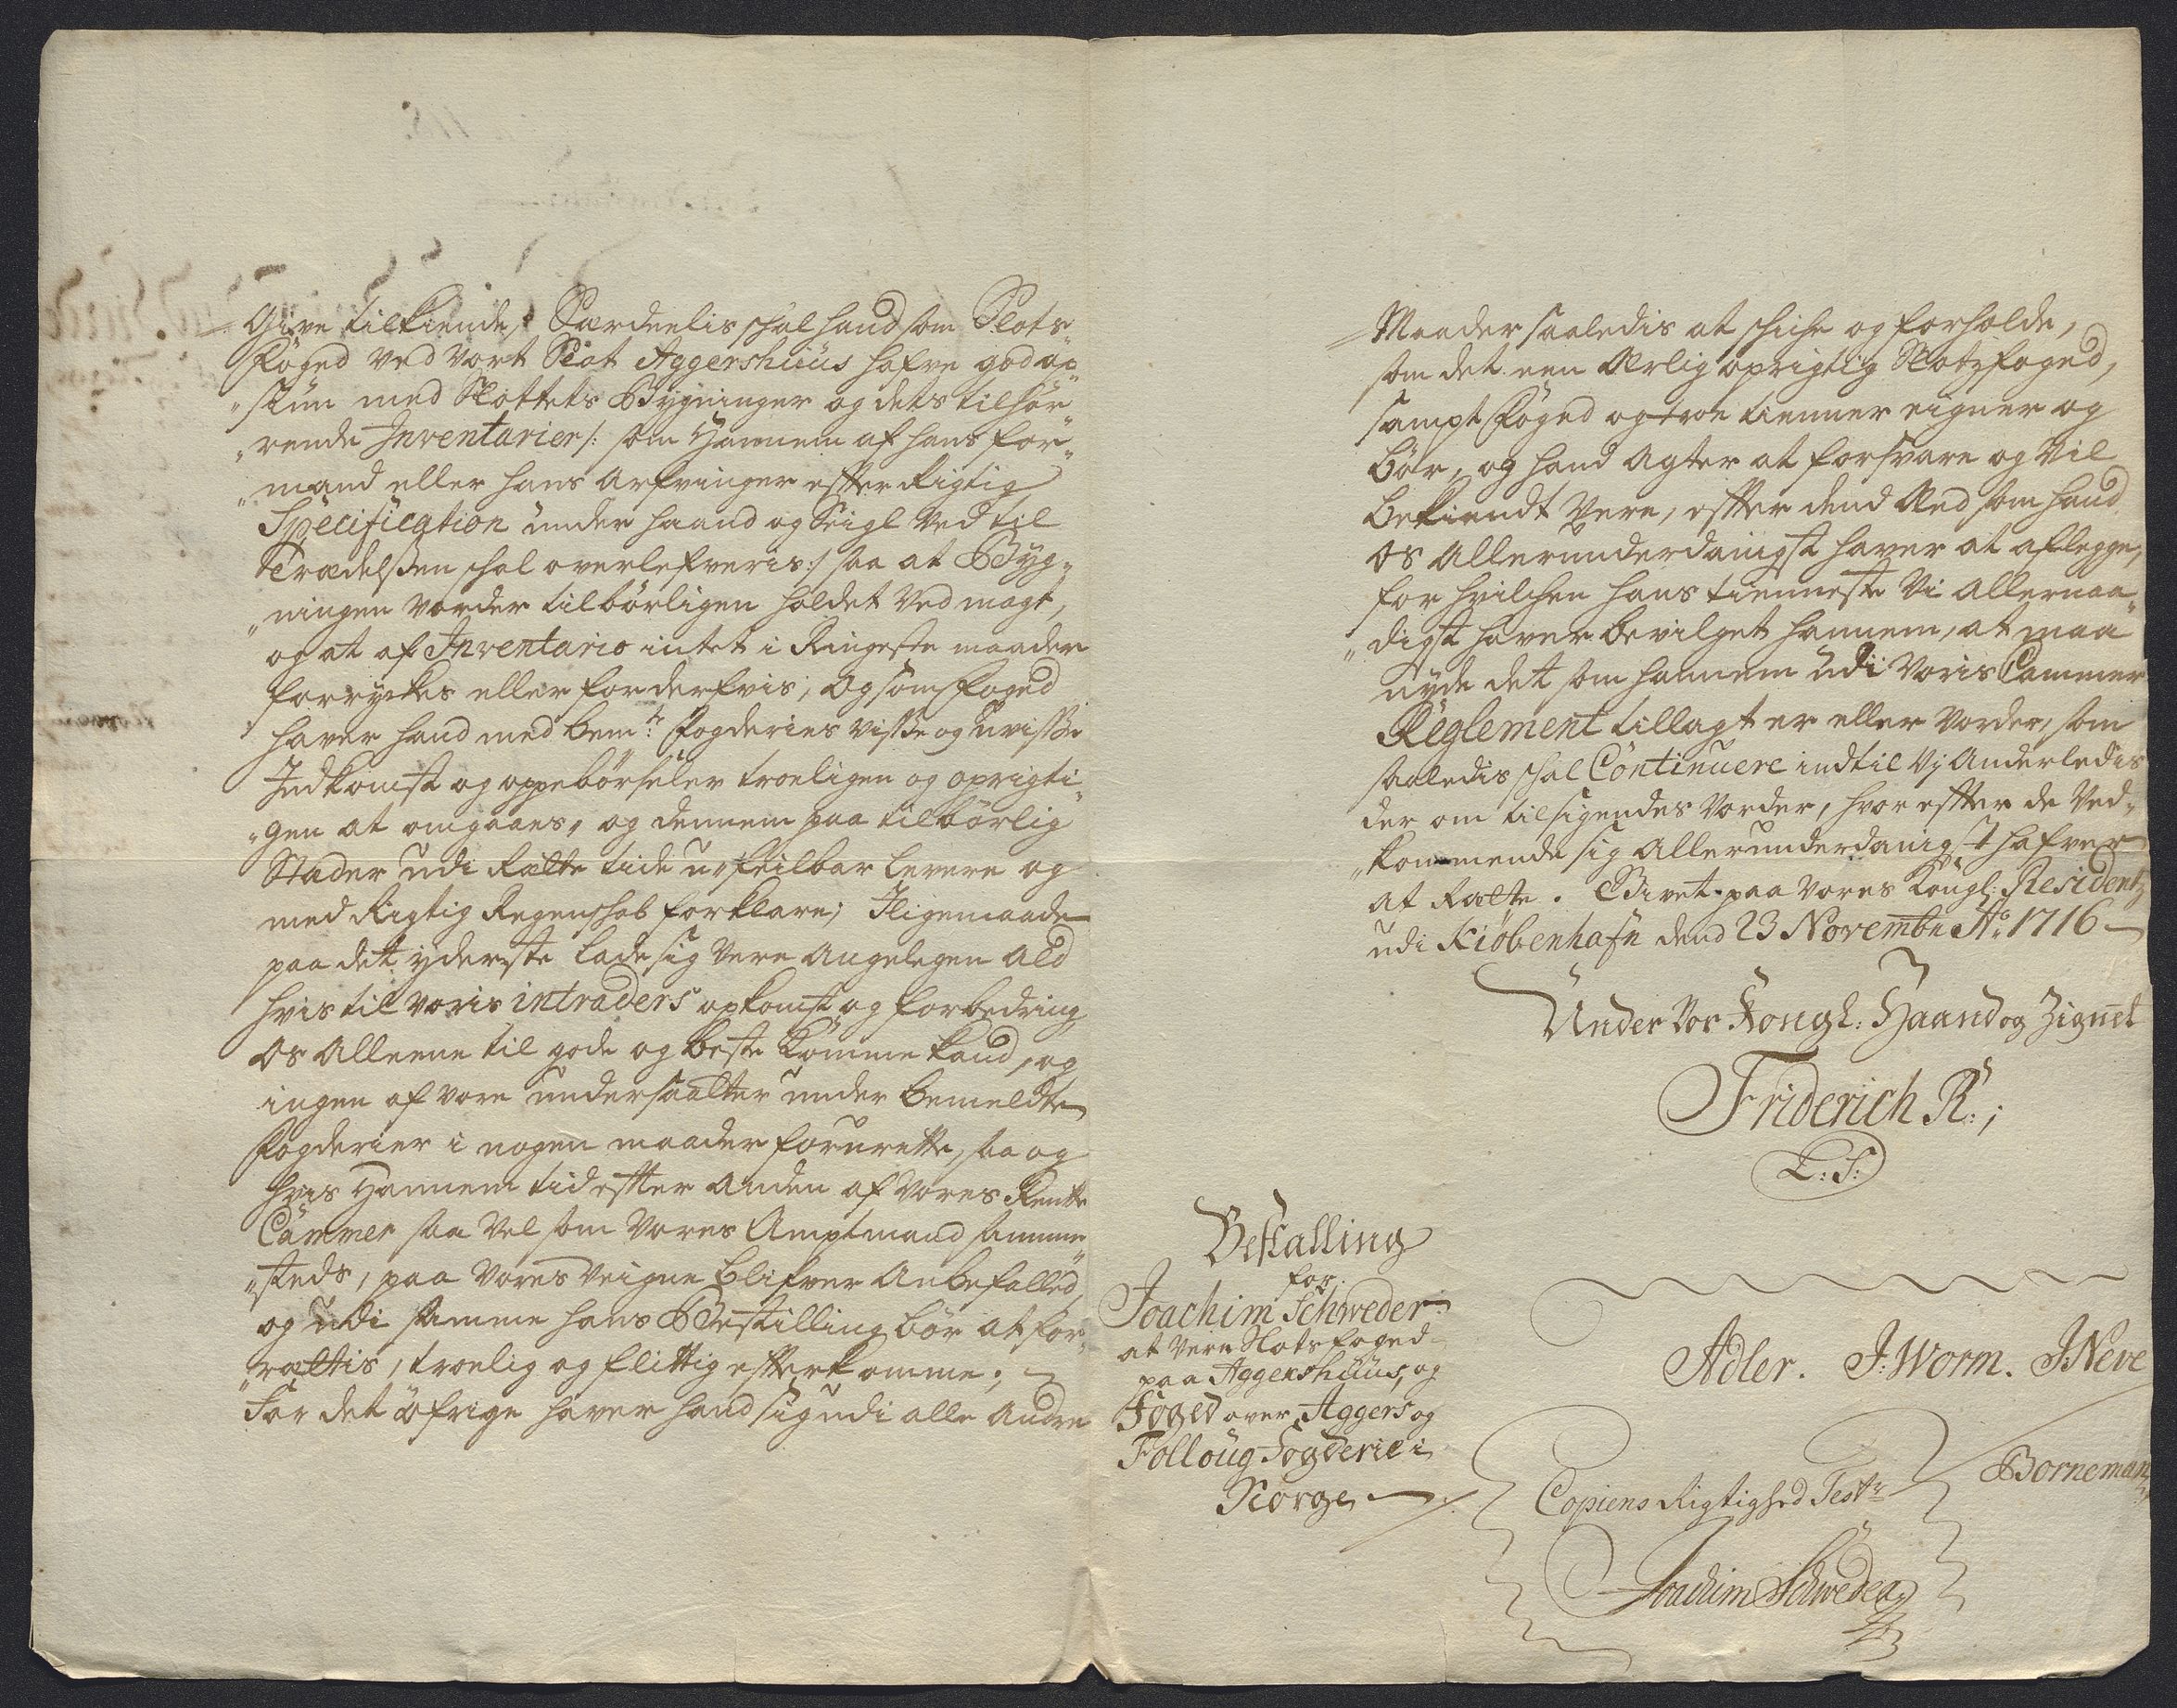 Give tilkiende, Særdeelis schal hand som Slots„
Foged ved vort Slot Aggershuus hafve god op„
„siun med Slottets Bygninger og dets tilhør„
„rende Inventarier /: som Hannem af hans for„
„mand eller hans Arfvinger effter Rigtig
Specification under haand og Seigl ved til„
Trædelßen schal overlefveris :/ saa at Byg„
„ningen vorder tilbørligen holdet ved magt,
og at af Inventario intet i Ringeste maader
forryckes eller forderfvis; Og som Foged
haver hand med bemte Fogderies visße og uvisße
Indkomst og oppebørseler troeligen og oprigti„
„gen at omgaaes, og dennem paa tilbørlig
Stæder udi Rætte tide u-feilbar levere og
med Rigtig Regenschab forklare; Iligemaade
paa det yderste lade sig være Angelegen ald
hvis til voris intraders opkomst og forbedring
Os Alleene til gode og beste komme kand, og
ingen af vore undersaatter under bemeldte
Fogderier i nogen maader forurette, saa og
hvis Hannem tid effter anden af vores Rente
Cammer saa vel som vores Amptmand samme„
„steds, paa vores veigne blifver Anbefalled,
og udi samme hans Bestilling bør at for„
„rættis, troelig og flittig efterkomme;
For det öfrige haver hand sig udi alle Andre
Maader saaledis at schiche og forholde,
som det een Ærlig oprigtig Slotzfoged,
sampt Foged og troe tienner eigner og
bør, og hand Agter at forsvare og vil
bekiendt være, effter dend Æed som hand
os Allerunderdanigst haver at aflegge,
for hvilchen hans tienneste Vi Allernaa„
„digst haver bevilget hannem, at maa
nyde det som hannem udi Voris Cammer
Reglement tillagt er eller vorder, som
saaledis schal Continuere indtil Vj Anderledis
der om tilsigendes vorder, hvor effter de Ved„
„kommende sig Allerunderdanigst hafver
at Rætte. Givet paa vores Kongl: Residentz
udi Kiöbenhafn dend 23 Novembr Ao 1716
Under Vor Kongl: Haand og Zignet
Friderich R:;
L: S:
Bestalling
for
Joachim Schweder
at være Slotsfoged
paa Aggershuus, og
Foged over Aggers og
Folloug Fogderie i
Norge
Adler. J: Worm. J: Neve
Borneman
Copiens Rigtighed Testr
Joachim Schweder